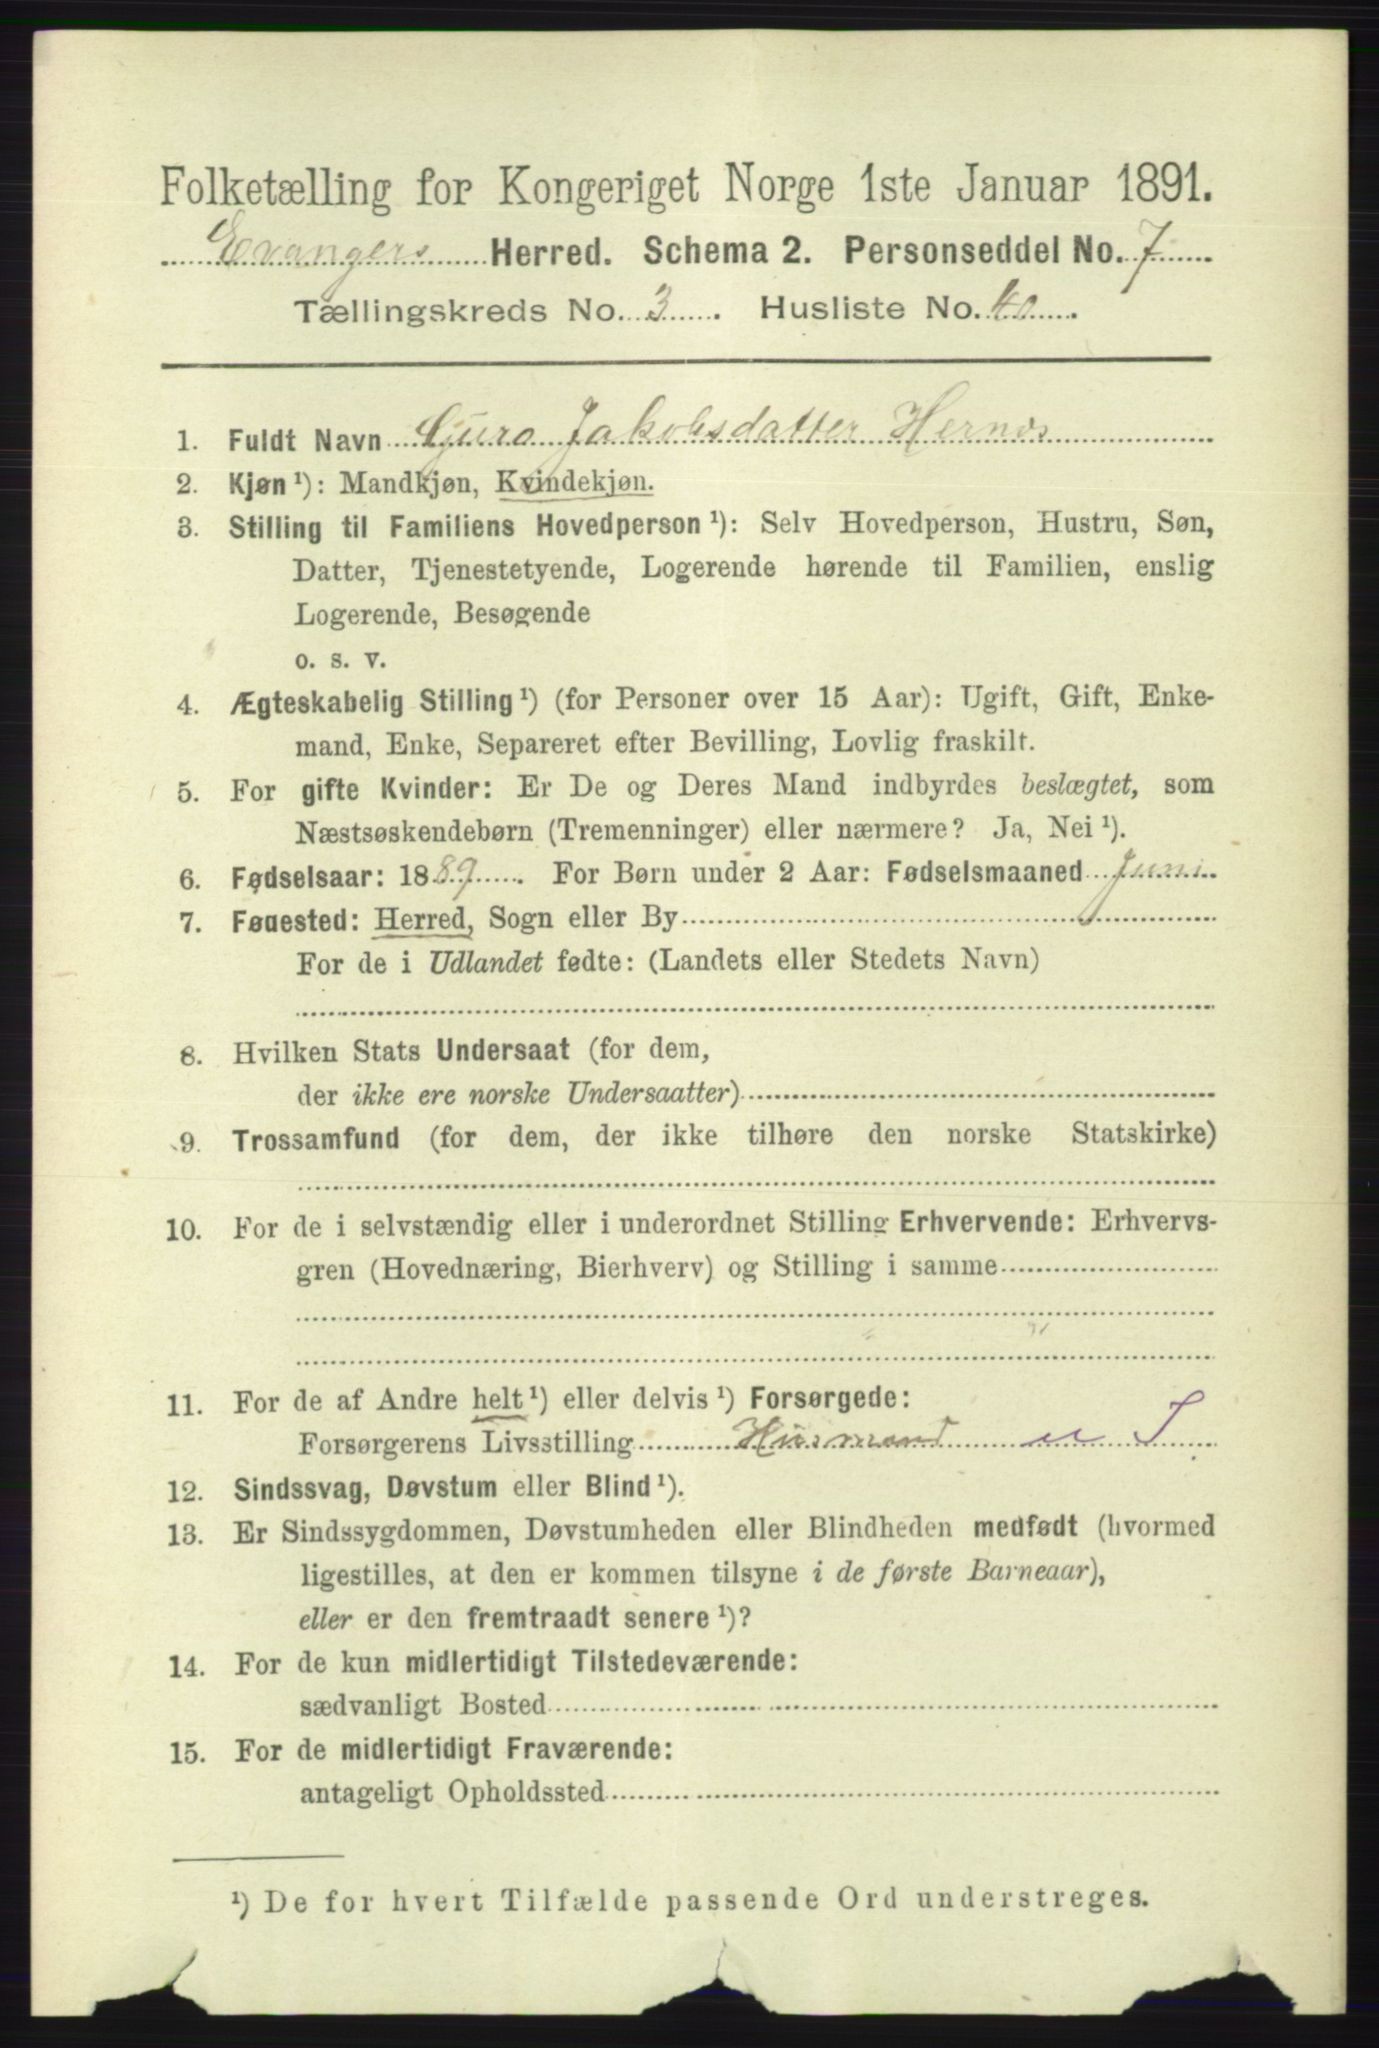 Folketælling for Kongeriget Norge 1ste Januar 1891.
Evangers Herred. Schema 2. Personseddel No. 7
Tællingskreds No. 3. Husliste No. 40.
1. Fuldt Navn Guro Jakobsdatter Hernes
2. Kjøn ¹): Mandkjøn, Kvindekjøn.
3. Stilling til Familiens Hovedperson ¹): Selv Hovedperson, Hustru, Søn,
Datter, Tjenestetyende, Logerende hørende til Familien, enslig
Logerende, Besøgende
o. s. v.
4. Ægteskabelig Stilling ¹) (for Personer over 15 Aar): Ugift, Gift, Enke-
mand, Enke, Separeret efter Bevilling, Lovlig fraskilt.
5. For gifte Kvinder: Er De og Deres Mand indbyrdes beslægtet, som
Næstsøskendebørn (Tremenninger) eller nærmere? Ja, Nei ¹).
6. Fødselsaar: 1889. For Børn under 2 Aar: Fødselsmaaned Juni
7. Fødested: Herred, Sogn eller By
For de i Udlandet fødte: (Landets eller Stedets Navn)
8. Hvilken Stats Undersaat (for dem,
der ikke ere norske Undersaatter)
9. Trossamfund (for dem, der ikke tilhøre den norske Statskirke)
10. For de i selvstændig eller i underordnet Stilling Erhvervende: Erhvervs-
gren (Hovednæring, Bierhverv) og Stilling i samme
11. For de af Andre helt ¹) eller delvis ¹) Forsørgede:
Forsørgerens Livsstilling Husmand u J
12. Sindssvag, Døvstum eller Blind ¹).
13. Er Sindssygdommen, Døvstumheden eller Blindheden medfødt (hvormed
ligestilles, at den er kommen tilsyne i de første Barneaar),
eller er den fremtraadt senere ¹)?
14. For de kun midlertidigt Tilstedeværende:
sædvanligt Bosted
15. For de midlertidigt Fraværende:
antageligt Opholdssted
¹) De for hvert Tilfælde passende Ord understreges.